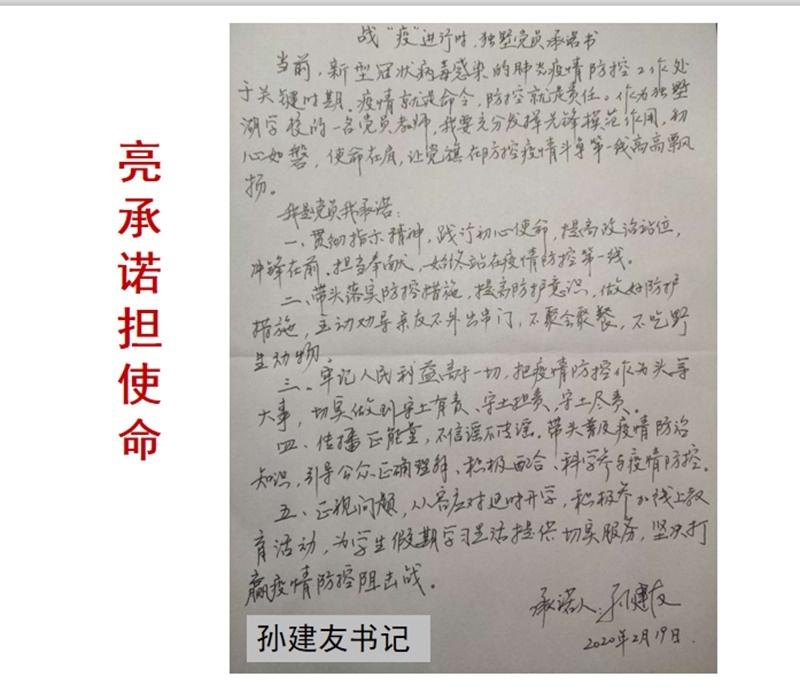 亮承诺担使命
战“疫”进行时，独墅党员承诺书
当前，新型冠状病毒感染的肺炎疫情防控工作处
于关键时期。疫情就是命令，防控就是责任。作为独墅
湖学校的一名党员教师，我要充分发挥先锋模范作用，初
心如磐，使命在肩，让党旗在防控疫情斗争第一线高高飘
扬。
我是党员我承诺：
一、贯彻指示精神，践行初心使命，提高政治站位，
冲锋在前、担当奉献，始终站在疫情防控第一线。
二、带头落实防控措施，提高防护意识，做好防护
措施，主动劝导亲友不外出串门，不聚会聚餐，不吃野
生动物。
三、牢记人民利益高于一切，把疫情防控作为头等
大事，切实做到守土有责、守土担责、守土尽责。
四、传播正能量，不信谣不传谣。带头普及疫情防治
知识，引导公众正确理解、积极配合、科学参与疫情防控。
五、正视问题，从容应对延时开学，积极参加线上教
育活动，为学生假期学习生活提供切实服务，坚决打
赢疫情防控阻击战。
承诺人：孙建友
2020年2月19日.
孙建友书记